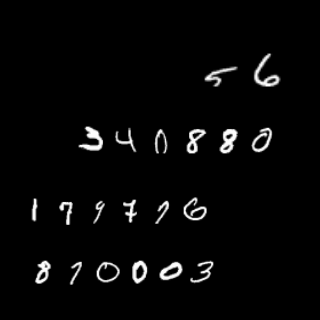 56
340880
179776
810003